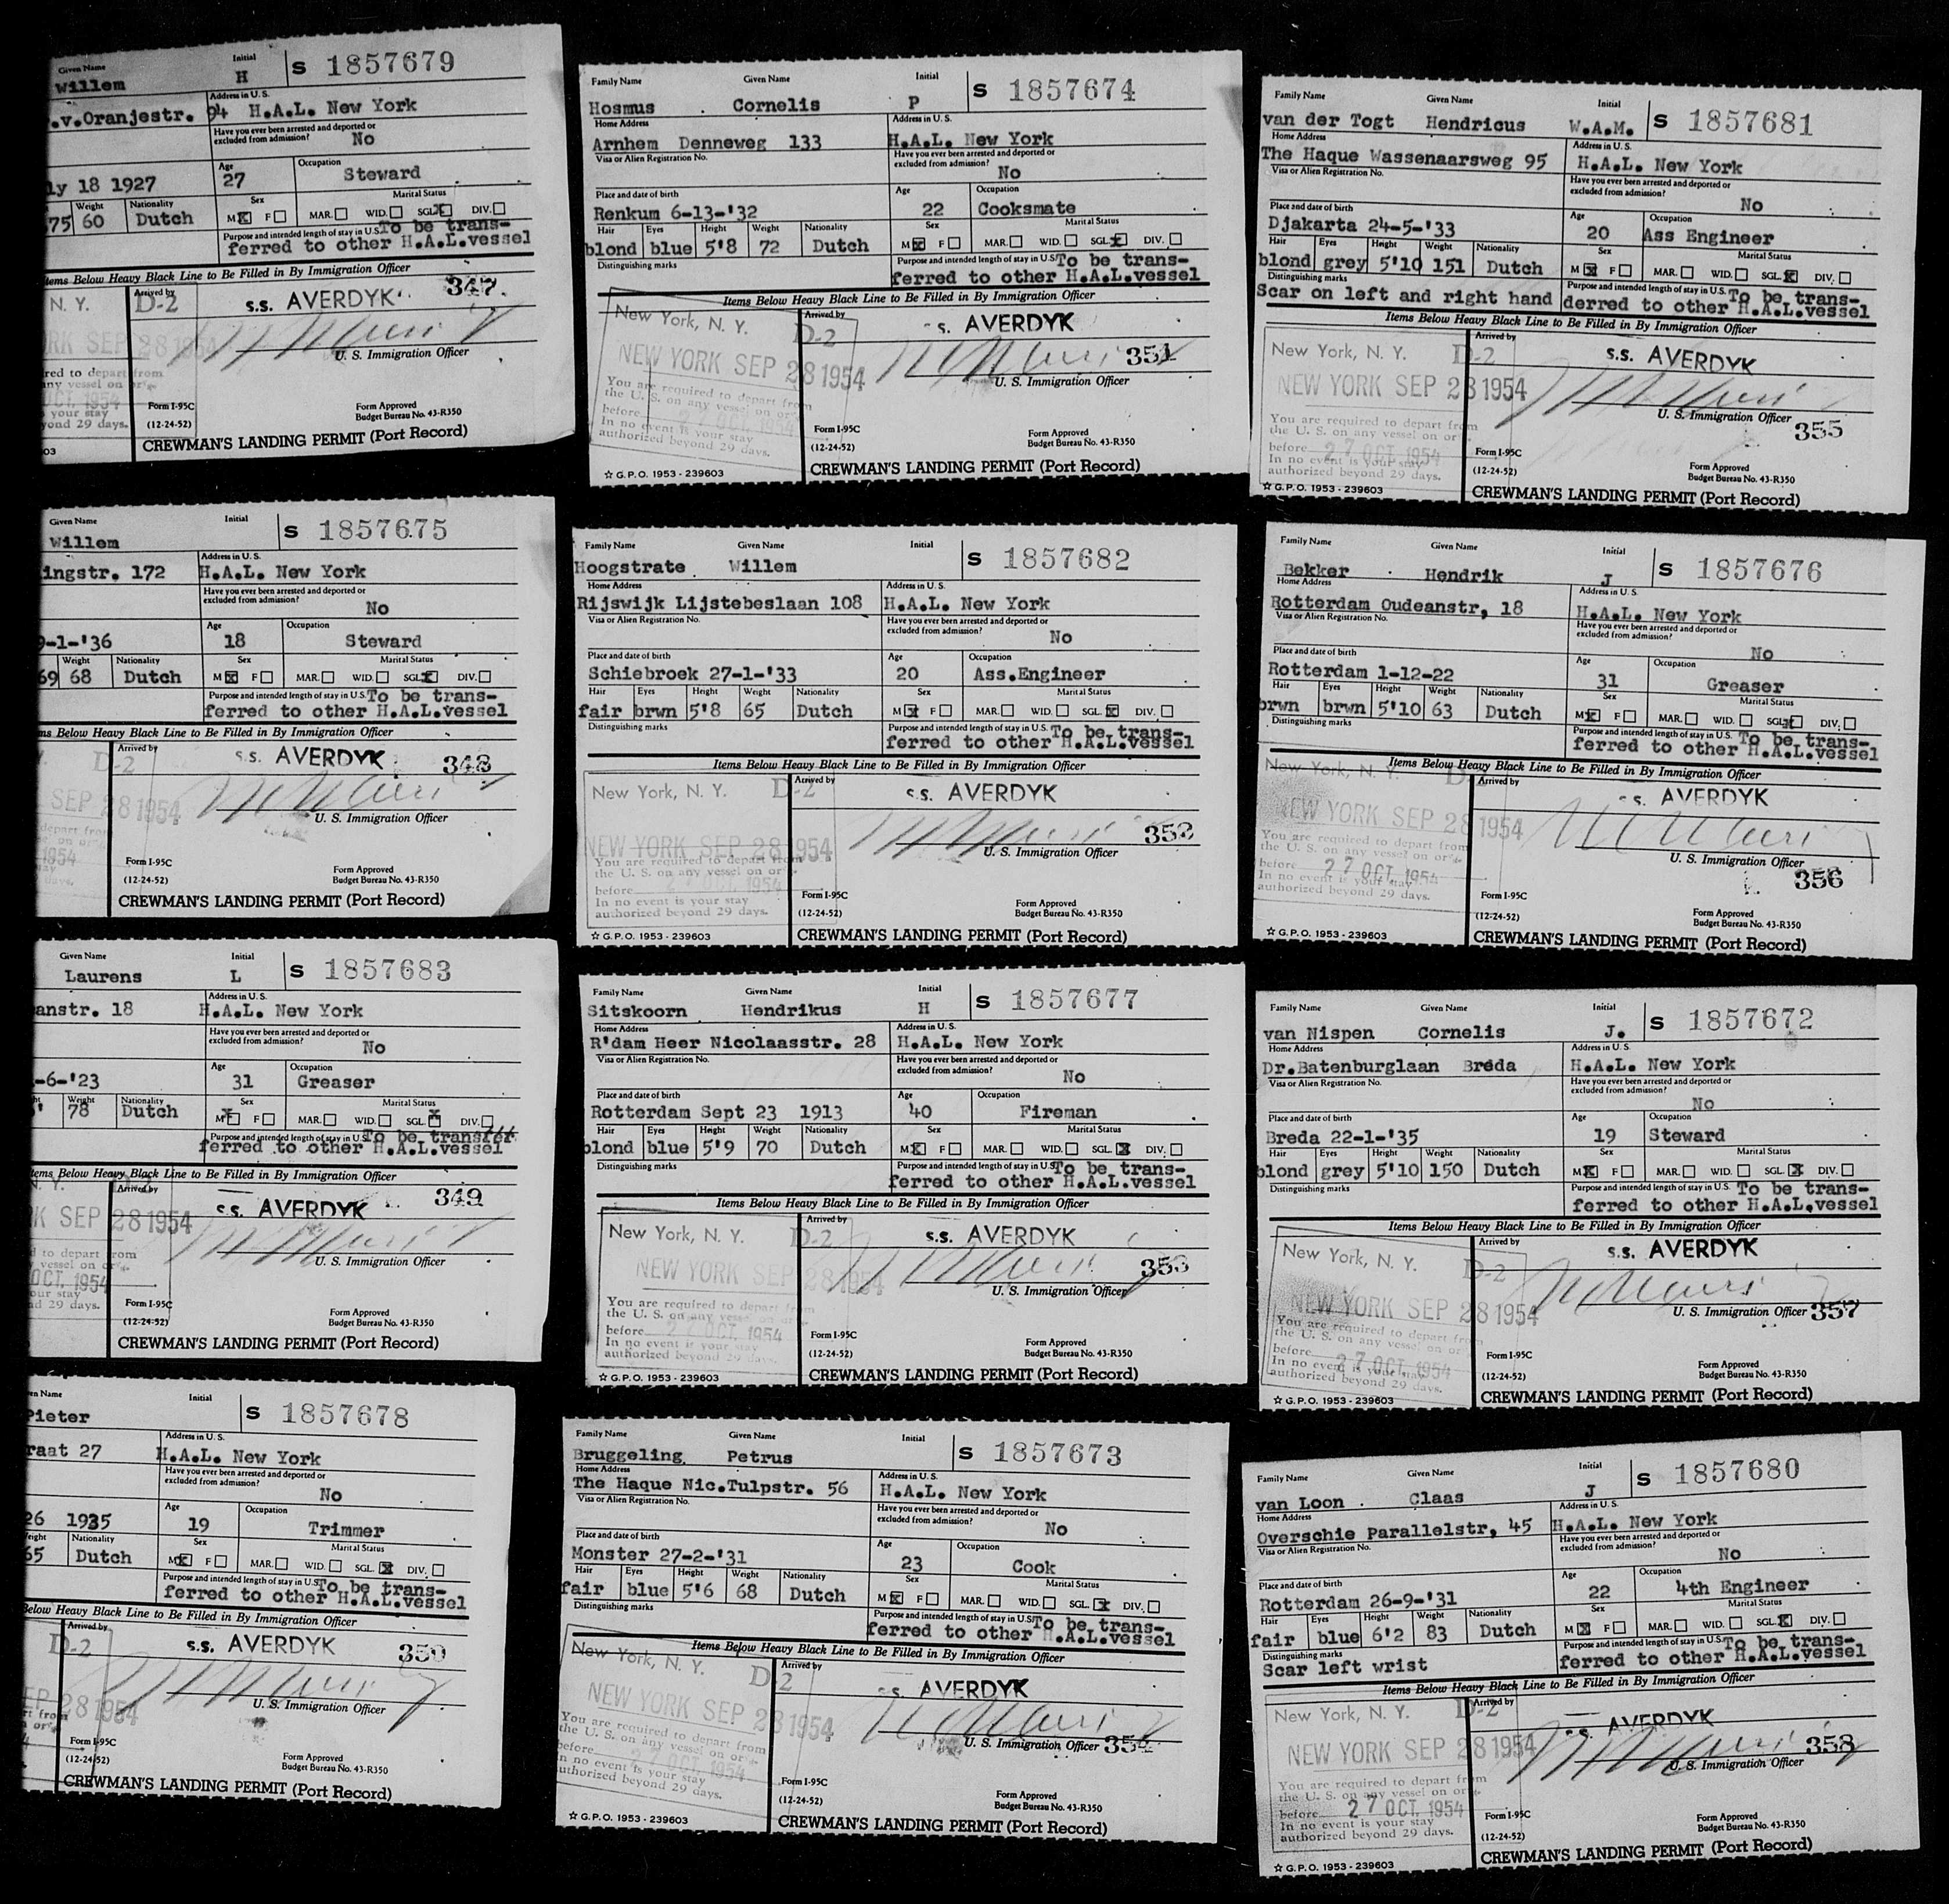 Given Name Initial S 1857679
Willem H
Address in U. S.
.v.Oranjestr. 94 H.A.L. New York
Have you ever been arrested and deported or
excluded from admission? No
Age Occupation
ly 18 1927 27 Steward
Weight Nationality Sex Marital Status
75 60 Dutch M F MAR. WID. SGL. DIV.
Purpose and intended length of stay in U.S. To be trans-
ferred to other H.A.L.vessel
Items Below Heavy Black Line to Be Filled in By Immigration Officer
N. Y. D-2 Arrived by s.s. AVERDYK 347
RK SEP 28 1954
U. S. Immigration Officer
red to depart from
any vessel on or
OCT. 1954
your stay
yond 29 days.
Form I-95C
(12-24-52)
Form Approved
Budget Bureau No. 43-R350
CREWMAN'S LANDING PERMIT (Port Record)
03
Given Name Initial S 1857675
Willem
Address in U.S.
ingstr. 172 H.A.L. New York
Have you ever been arrested and deported or
excluded from admission? No
Age Occupation
9-1-'36 18 Steward
Weight Nationality Sex Marital Status
69 68 Dutch M F MAR. WID. SGL. DIV.
Purpose and intended length of stay in U.S. To be trans-
ferred to other H.A.L.vessel
ms Below Heavy Black Line to Be Filled in By Immigration Officer
Y. D-2 Arrived by s.s. AVERDYK 348
SEP 28 1954
U. S. Immigration Officer
depart from
on or
1954
ay
days.
Form I-95C
(12-24-52)
Form Approved
Budget Bureau No. 43-R350
CREWMAN'S LANDING PERMIT (Port Record)
Given Name Initial S 1857683
Laurens L
Address in U.S.
anstr. 18 H.A.L. New York
Have you ever been arrested and deported or
excluded from admission? No
Age Occupation
-6-'23 31 Greaser
Weight Nationality Sex Marital Status
78 Dutch M F MAR. WID. SGL. DIV.
Purpose and intended length of stay in U.S. To be trans
ferred to other H.A.L.vessel
tems Below Heavy Black Line to Be Filled in By Immigration Officer
N. Y. Arrived by s.s. AVERDYK 349
K SEP 28 1954
U. S. Immigration Officer
d to depart from
vessel on or
OCT. 1954
our stay
nd 29 days.
Form I-95C
(12-24-52)
Form Approved
Budget Bureau No. 43-R350
CREWMAN'S LANDING PERMIT (Port Record)
en Name Initial S 1857678
Pieter
Address in U.S.
raat 27 H.A.L. New York
Have you ever been arrested and deported or
excluded from admission? No
Age Occupation
26 1935 19 Trimmer
eight Nationality Sex Marital Status
65 Dutch M F MAR. WID. SGL. DIV.
Purpose and intended length of stay in U.S. To be trans-
ferred to other H.A.L.vessel
Below Heavy Black Line to Be Filled in By Immigration Officer
D-2 Arrived by s.s. AVERDYK 350
EP 28 1954
U. S. Immigration Officer
rt from
on or
Form I-95C
(12-24-52)
Form Approved
Budget Bureau No. 43-R350
CREWMAN'S LANDING PERMIT (Port Record)
Family Name Given Name Initial S 1857674
Hosmus Cornelis P
Home Address Address in U. S.
Arnhem Denneweg 133 H.A.L. New York
Visa or Alien Registration No. Have you ever been arrested and deported or
excluded from admission? No
Place and date of birth Age Occupation
Renkum 6-13-'32 22 Cooksmate
Hair Eyes Height Weight Nationality Sex Marital Status
blond blue 5'8 72 Dutch M F MAR. WID. SGL. DIV.
Distinguishing marks Purpose and intended length of stay in U.S. To be trans-
ferred to other H.A.L.vessel
Items Below Heavy Black Line to Be Filled in By Immigration Officer
New York, N. Y. D-2 Arrived by s. AVERDYK
NEW YORK SEP 28 1954 351
U. S. Immigration Officer
You are required to depart from
the U. S. on any vessel on or
before 27 OCT. 1954
In no event is your stay
authorized beyond 29 days.
Form I-95C
(12-24-52)
Form Approved
Budget Bureau No. 43-R350
☆ G.P.O. 1953 - 239603 CREWMAN'S LANDING PERMIT (Port Record)
Family Name Given Name Initial S 1857682
Hoogstrate Willem
Home Address Address in U. S.
Rijswijk Lijstebeslaan 108 H.A.L. New York
Visa or Alien Registration No. Have you ever been arrested and deported or
excluded from admission? No
Place and date of birth Age Occupation
Schiebroek 27-1-'33 20 Ass.Engineer
Hair Eyes Height Weight Nationality Sex Marital Status
fair brwn 5'8 65 Dutch M F MAR. WID. SGL. DIV.
Distinguishing marks Purpose and intended length of stay in U.S. To be trans-
ferred to other H.A.L.vessel
Items Below Heavy Black Line to Be Filled in By Immigration Officer
New York, N. Y. D-2 Arrived by s.s. AVERDYK
NEW YORK SEP 28 1954 352
U. S. Immigration Officer
You are required to depart from
the U. S. on any vessel on or
before 27 OCT. 1954
In no event is your stay
authorized beyond 29 days.
Form I-95C
(12-24-52)
Form Approved
Budget Bureau No. 43-R350
☆ G.P.O. 1953 - 239603 CREWMAN'S LANDING PERMIT (Port Record)
Family Name Given Name Initial S 1857677
Sitskoorn Hendrikus H
Home Address Address in U. S.
R'dam Heer Nicolaasstr. 28 H.A.L. New York
Visa or Alien Registration No. Have you ever been arrested and deported or
excluded from admission? No
Place and date of birth Age Occupation
Rotterdam Sept 23 1913 40 Fireman
Hair Eyes Height Weight Nationality Sex Marital Status
blond blue 5'9 70 Dutch M F MAR. WID. SGL. DIV.
Distinguishing marks Purpose and intended length of stay in U.S. To be trans-
ferred to other H.A.L.vessel
Items Below Heavy Black Line to Be Filled in By Immigration Officer
New York, N. Y. D-2 Arrived by s.s. AVERDYK
NEW YORK SEP 28 1954 353
U. S. Immigration Officer
You are required to depart from
the U. S. on any vessel on or
before 27 OCT. 1954
In no event is your stay
authorized beyond 29 days.
Form I-95C
(12-24-52)
Form Approved
Budget Bureau No. 43-R350
☆ G.P.O. 1953 - 239603 CREWMAN'S LANDING PERMIT (Port Record)
Family Name Given Name Initial S 1857673
Bruggeling Petrus
Home Address Address in U. S.
The Haque Nic.Tulpstr. 56 H.A.L. New York
Visa or Alien Registration No. Have you ever been arrested and deported or
excluded from admission? No
Place and date of birth Age Occupation
Monster 27-2-'31 23 Cook
Hair Eyes Height Weight Nationality Sex Marital Status
fair blue 5'6 68 Dutch M F MAR. WID. SGL. DIV.
Distinguishing marks Purpose and intended length of stay in U.S. To be trans-
ferred to other H.A.L.vessel
Items Below Heavy Black Line to Be Filled in By Immigration Officer
New York, N. Y. D-2 Arrived by s. AVERDYK
NEW YORK SEP 28 1954
U. S. Immigration Officer 354
You are required to depart from
the U. S. on any vessel on or
before 27 OCT. 1954
In no event is your stay
authorized beyond 29 days.
Form I-95C
(12-24-52)
Form Approved
Budget Bureau No. 43-R350
☆ G.P.O. 1953 - 239603 CREWMAN'S LANDING PERMIT (Port Record)
Family Name Given Name Initial S 1857681
van der Togt Hendricus W.A.M.
Home Address Address in U. S.
The Haque Wassenaarsweg 95 H.A.L. New York
Visa or Alien Registration No. Have you ever been arrested and deported or
excluded from admission? No
Place and date of birth Age Occupation
Djakarta 24-5-'33 20 Ass Engineer
Hair Eyes Height Weight Nationality Sex Marital Status
blond grey 5'10 151 Dutch M F MAR. WID. SGL. DIV.
Distinguishing marks Purpose and intended length of stay in U.S. To be trans-
Scar on left and right hand derred to other H.A.L.vessel
Items Below Heavy Black Line to Be Filled in By Immigration Officer
New York, N. Y. D-2 Arrived by s.s. AVERDYK
NEW YORK SEP 28 1954
U. S. Immigration Officer
355
You are required to depart from
the U. S. on any vessel on or
before 27 OCT. 1954
In no event is your stay
authorized beyond 29 days.
Form I-95C
(12-24-52)
Form Approved
Budget Bureau No. 43-R350
☆ G.P.O. 1953 - 239603 CREWMAN'S LANDING PERMIT (Port Record)
Family Name Given Name Initial S 1857676
Bekker Hendrik J
Home Address Address in U. S.
Rotterdam Oudeanstr, 18 H.A.L. New York
Visa or Alien Registration No. Have you ever been arrested and deported or
excluded from admission? No
Place and date of birth Age Occupation
Rotterdam 1-12-22 31 Greaser
Hair Eyes Height Weight Nationality Sex Marital Status
brwn brwn 5'10 63 Dutch M F MAR. WID. SGL. DIV.
Distinguishing marks Purpose and intended length of stay in U.S. To be trans-
ferred to other H.A.L.vessel
Items Below Heavy Black Line to Be Filled in By Immigration Officer
New York, N. Y. D Arrived by s. AVERDYK
NEW YORK SEP 28 1954
U. S. Immigration Officer
356
You are required to depart from
the U. S. on any vessel on or
before 27 OCT. 1954
In no event is your stay
authorized beyond 29 days.
Form I-95C
(12-24-52)
Form Approved
Budget Bureau No. 43-R350
☆ G.P.O. 1953 - 239603 CREWMAN'S LANDING PERMIT (Port Record)
Family Name Given Name Initial S 1857672
van Nispen Cornelis J.
Home Address Address in U. S.
Dr.Batenburglaan Breda H.A.L. New York
Visa or Alien Registration No. Have you ever been arrested and deported or
excluded from admission? No
Place and date of birth Age Occupation
Breda 22-1-'35 19 Steward
Hair Eyes Height Weight Nationality Sex Marital Status
blond grey 5'10 150 Dutch M F MAR. WID. SGL. DIV.
Distinguishing marks Purpose and intended length of stay in U.S. To be trans-
ferred to other H.A.L.vessel
Items Below Heavy Black Line to Be Filled in By Immigration Officer
New York, N. Y. D-2 Arrived by s.s. AVERDYK
NEW YORK SEP 28 1954
U. S. Immigration Officer 357
You are required to depart from
the U. S. on any vessel on or
before 27 OCT. 1954
In no event is your stay
authorized beyond 29 days.
Form I-95C
(12-24-52)
Form Approved
Budget Bureau No. 43-R350
☆ G.P.O. 1953 - 239603 CREWMAN'S LANDING PERMIT (Port Record)
Family Name Given Name Initial S 1857680
van Loon Claas J
Home Address Address in U. S.
Overschie Parallelstr, 45 H.A.L. New York
Visa or Alien Registration No. Have you ever been arrested and deported or
excluded from admission? No
Place and date of birth Age Occupation
Rotterdam 26-9-'31 22 4th Engineer
Hair Eyes Height Weight Nationality Sex Marital Status
fair blue 6'2 83 Dutch M F MAR. WID. SGL. DIV.
Distinguishing marks Purpose and intended length of stay in U.S. To be trans-
Scar left wrist ferred to other H.A.L.vessel
Items Below Heavy Black Line to Be Filled in By Immigration Officer
New York, N. Y. D-2 Arrived by s.s. AVERDYK
NEW YORK SEP 28 1954 358
U. S. Immigration Officer
You are required to depart from
the U. S. on any vessel on or
before 27 OCT. 1954
In no event is your stay
authorized beyond 29 days.
Form I-95C
(12-24-52)
Form Approved
Budget Bureau No. 43-R350
☆ G.P.O. 1953 - 239603 CREWMAN'S LANDING PERMIT (Port Record)